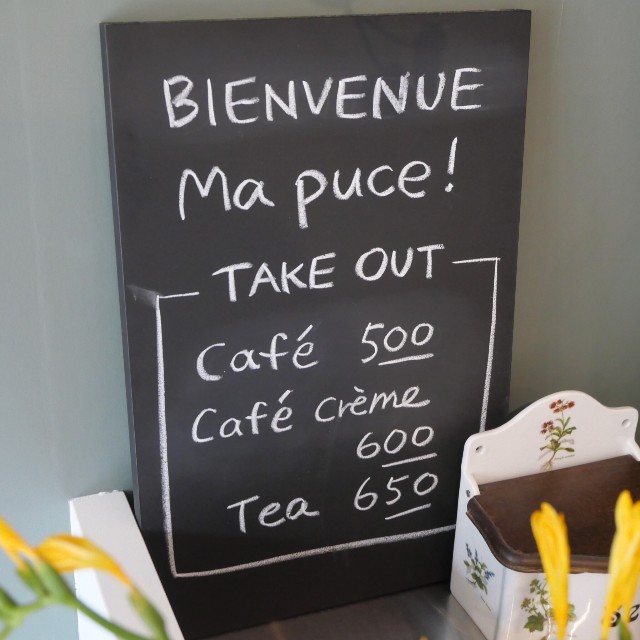 BIENVENUE
Ma puce!
TAKE OUT
Café 500
Café crème
600
Tea 650